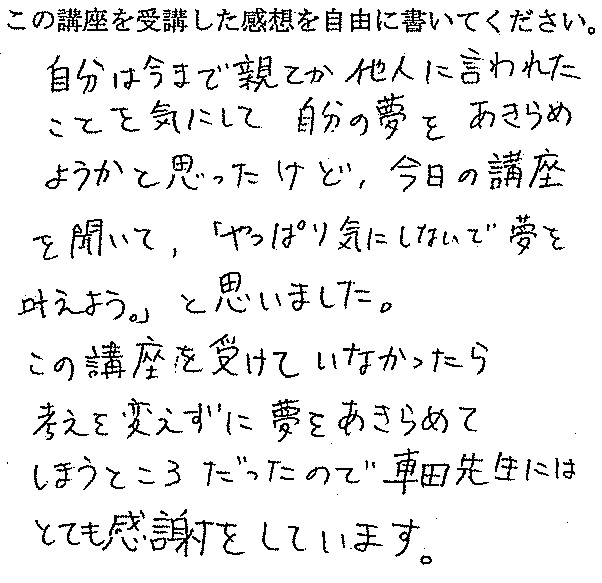 この講座を受講した感想を自由に書いてください。
自分は今まで親とか他人に言われた
ことを気にして自分の夢をあきらめ
ようかと思ったけど、今日の講座
を聞いて、「やっぱり気にしないで夢を
叶えよう。」と思いました。
この講座を受けていなかったら
考えを変えずに夢をあきらめて
しまうところだったので車田先生には
とても感謝をしています。